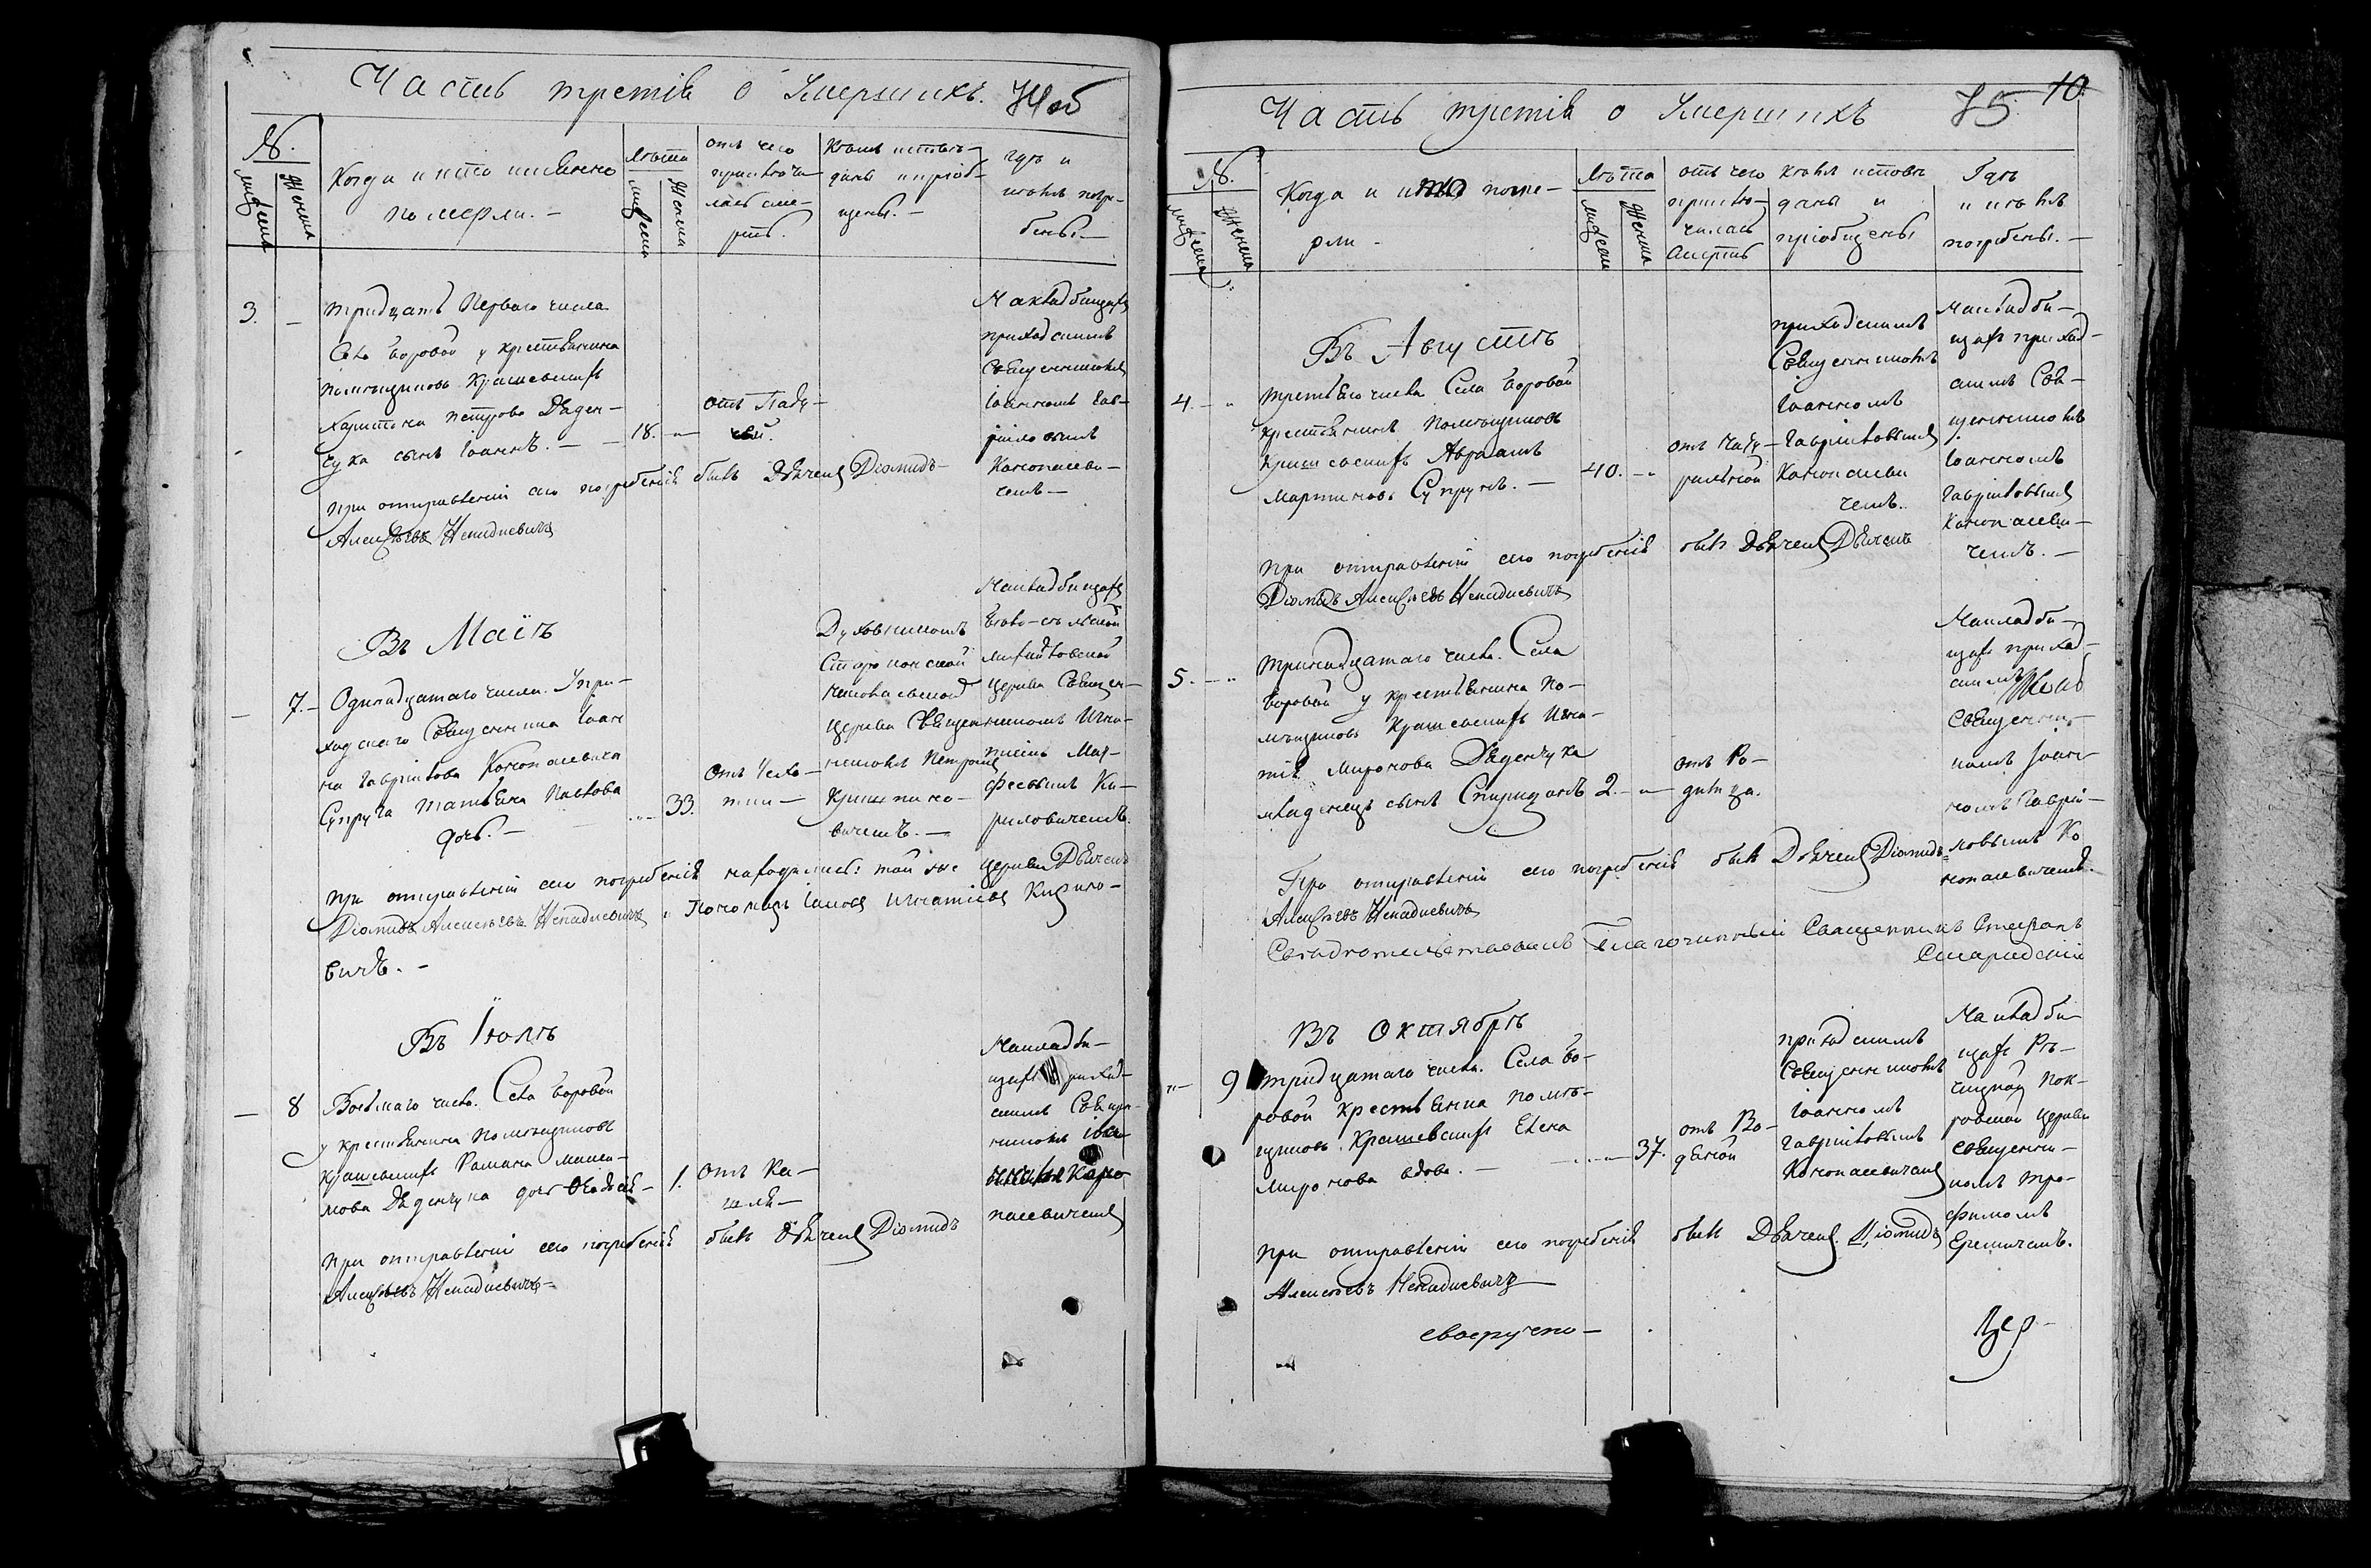 Часть третія о Умершихъ. 74 об
№.
мужеска
женска
Когда и кто именно
померли. —
Лѣта
мужеска
женска
отъ чего
приключи-
лась сме-
рть.
Кѣмъ исповѣ-
даны и пріоб-
щены. —
гдѣ и
кѣмъ погре-
бены. —
3. —
тридцать Перваго числа
Села Боровой у крестьянина
помѣщиковъ Крашевскихъ
Харитона петрова Дѣден-
чука сынъ Іоаннъ. —
18. —
отъ Паду-
чей.
На кладбищахъ
приходскимъ
Священникомъ
Іоанномъ Гав-
риловымъ
Конопасеви-
чемъ —
при отправленіи сего погребенія былъ Дьячекъ Діомидъ
Алексѣевъ Ненадкевичъ
Въ Маіѣ
— 7. —
Одинадцатаго числа. У при-
ходскаго Священника Іоан
на Гаврилова Конопасевича
Супруга татьяна Павлова
дочь. —
33.
Отъ Чахо-
тки —
Духовникомъ
церкви Священ-
никомъ Петромъ
вичемъ. —
На кладбищахъ
церкви Священ-
никомъ Игна-
тіемъ Мат-
феевымъ Ки-
риловичемъ.
при отправленіи сего погребенія находились: той же церкви Дьячекъ
Діомидъ Алексѣевъ Ненадкевичъ и Пономарь Іаковъ Игнатіевъ Кирило-
вичъ. —
Въ Іюлѣ
— 8
Восьмаго числа. Села Боровой
у крестьянина помѣщиковъ
Крашевскихъ Романа
мова Дѣденчука дочь Ѳеодосія —
1.
Отъ Ка-
шля —
На кладби-
щахъ приход-
скимъ Священ-
никомъ Іоан-
пасевичемъ
при отправленіи сего погребенія былъ Дьячекъ Діомидъ
Алексѣевъ Ненадкевичъ —
Часть третія о Умершихъ 75. 10.
№.
мужеска
женска
Когда и кто поме-
рли —
Лѣта
мужеска
женска
отъ чего
приклю-
чилась
смерть
кѣмъ исповѣ
даны и
пріобщены
Гдѣ
и кѣмъ
погребены. —
Въ Августѣ
4. —
третьяго числа Села Боровой
крестьянинъ помѣщиковъ
Крашевскихъ Авраамъ
Мартиновъ Супрунъ. —
40. —
приходскимъ
Священникомъ
Іоанномъ
Гавриловымъ
Конопасеви
чемъ.
На кладби-
щахъ приход-
скимъ Свя-
щенникомъ
Іоанномъ
Гавриловымъ
Конопасеви-
чемъ. —
при отправленіи сего погребенія былъ Дьячекъ Дьячекъ
Діомидъ Алексѣевъ Ненадкевичъ
5. —
Тринадцатаго числа. Села
Боровой у крестьянина по-
мѣщиковъ Крашевскихъ Игна-
тія Миронова Дѣденчука
младенецъ сынъ Спиридонъ
2. —
отъ Ро-
димца.
На кладби-
щахъ приход-
скимъ
Священни-
комъ Іоан
номъ Гаври-
ловымъ Ко
нопасевичемъ.
При отправленіи сего погребенія былъ Дьячекъ Діомидъ
Алексѣевъ Ненадкевичъ
Свидѣтельствовалъ Благочинный Священникъ Стефанъ
Въ Октябрѣ
9
тридцатаго числа. Села Бо-
ровой крестьянка помѣ-
щиковъ Крашевскихъ Елена
Миронова вдова. —
37.
отъ Во-
дяной
приходскимъ
Священникомъ
Іоанномъ
Гавриловымъ
Конопасевичемъ
На кладби
щахъ
Пок-
ровской церкви
священни-
комъ Тро-
фимомъ
при отправленіи сего погребенія былъ Дьячекъ. Діомидъ
Алексѣевъ Ненадкевичъ
своеручно —
Цер-